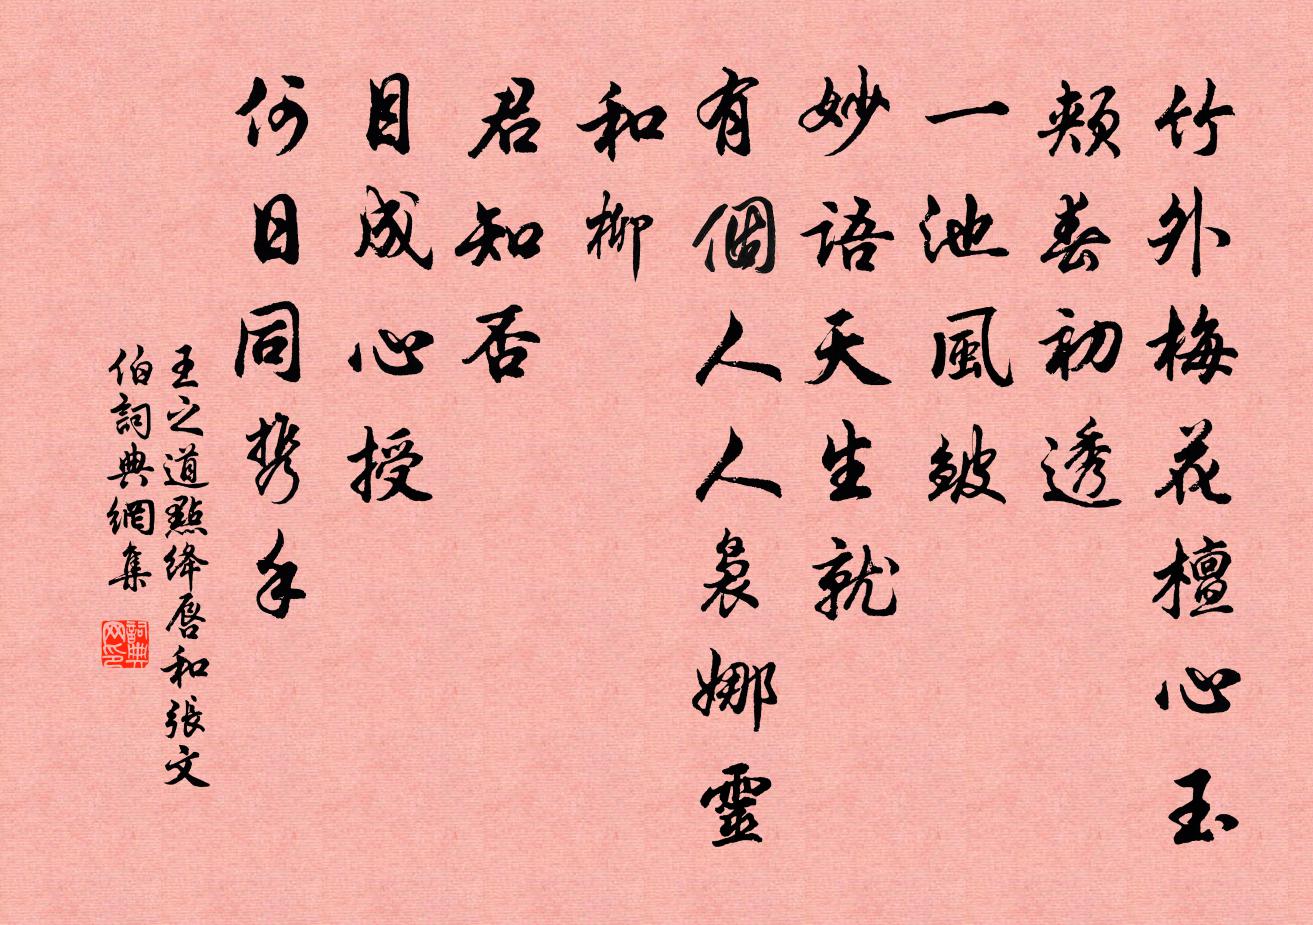 竹外梅花檀心玉
頰春初透
一池風皴
妙語天生就
有個人人裊娜靈
和柳
君知否
目成心授
何日同携手
王之道點绛唇和張文
伯詞典網集
詞典网印